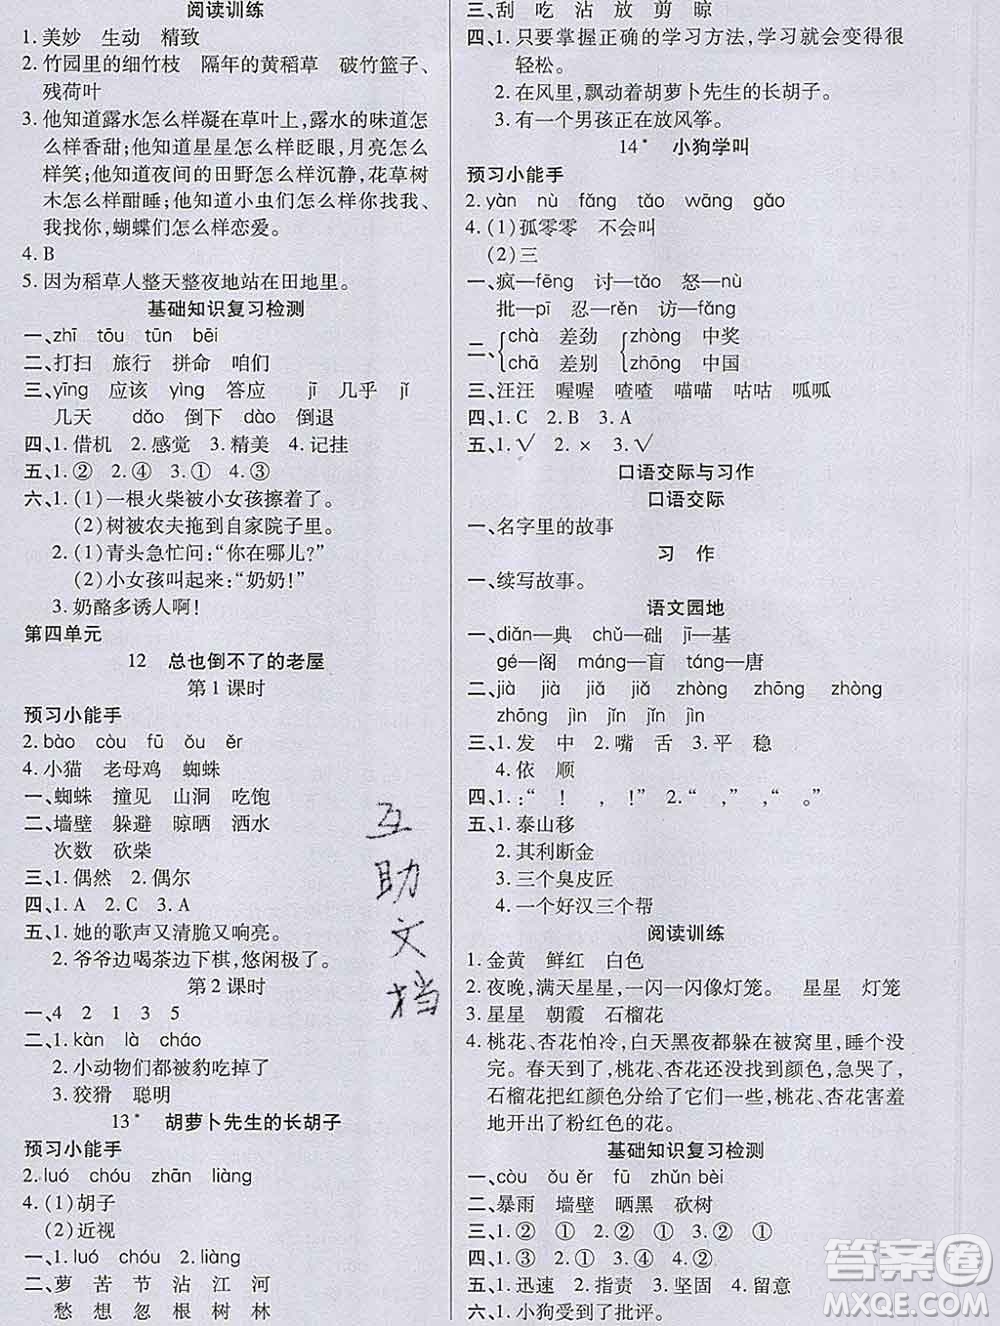 阅读训练
1. 美妙 生动 精致
2. 竹园里的细竹枝 隔年的黄稻草 破竹篮子、
残荷叶
3. 他知道露水怎么样凝在草叶上,露水的味道怎
么样香甜;他知道星星怎么样眨眼,月亮怎么
样笑;他知道夜间的田野怎么样沉静,花草树
木怎么样酣睡;他知道小虫们怎么样你找我、
我找你,蝴蝶们怎么样恋爱。
4. B
5. 因为稻草人整天整夜地站在田地里。
基础知识复习检测
一、zhī tōu tūn bēi
二、打扫 旅行 拼命 咱们
三、yīng 应该 yìng 答应 jī 几乎 jǐ
几天 dǎo 倒下 dào 倒退
四、1. 借机 2. 感觉 3. 精美 4. 记挂
五、1. ② 2. ④ 3. ① 4. ③
六、1. (1)一根火柴被小女孩擦着了。
(2)树被农夫拖到自家院子里。
2. (1)青头急忙问:“你在哪儿?”
(2)小女孩叫起来:“奶奶!”
3. 奶酪多诱人啊!
第四单元
12 总也倒不了的老屋
第 1 课时
预习小能手
2. bào còu fū ǒu ěr
4. 小猫 老母鸡 蜘蛛
一、蜘蛛 撞见 山洞 吃饱
二、墙壁 躲避 晾晒 洒水
次数 砍柴
三、1. 偶然 2. 偶尔
四、1. A 2. C 3. A
五、1. 她的歌声又清脆又响亮。
2. 爷爷边喝茶边下棋,悠闲极了。
第 2 课时
一、4 2 1 3 5
二、1. kàn là cháo
2. 小动物们都被豹吃掉了
3. 狡猾 聪明
13* 胡萝卜先生的长胡子
预习小能手
2. luó chóu zhān liàng
4. (1)胡子
(2)近视
一、1. luó chóu 2. liàng
二、萝 苦 节 沾 江 河
愁 想 忽 根 树 林
互
助
文
档
三、刮 吃 沾 放 剪 晾
四、1. 只要掌握正确的学习方法,学习就会变得很
轻松。
2. 在风里,飘动着胡萝卜先生的长胡子。
3. 有一个男孩正在放风筝。
14* 小狗学叫
预习小能手
2. yàn nù fǎng tǎo wāng gǎo
4. (1)孤零零 不会叫
(2)三
一、疯—fēng 讨—tǎo 怒—nù
批—pī 忍—rěn 访—fǎng
二、chà 差劲 zhòng 中奖
chā 差别 zhōng 中国
三、汪汪 喔喔 喳喳 喵喵 咕咕 呱呱
四、1. C 2. B 3. A
五、1. √ 2. × 3. √
口语交际与习作
口语交际
一、名字里的故事
习 作
一、续写故事。
语文园地
一、diǎn—典 chǔ—础 jī—基
gé—阁 máng—盲 táng—唐
二、jià jià jiǎ jiǎ zhōng zhòng zhòng
zhōng jìn jǐn jǐn jìn
三、1. 发 中 2. 嘴 舌 3. 平 稳
4. 依 顺
四、1. :“ ! , !” 2. “ ,” , “ 。”
五、1. 泰山移
2. 其利断金
3. 三个臭皮匠
4. 一个好汉三个帮
阅读训练
1. 金黄 鲜红 白色
2. 夜晚,满天星星,一闪一闪像灯笼。 星星 灯笼
3. 星星 朝霞 石榴花
4. 桃花、杏花怕冷,白天黑夜都躲在被窝里,睡个没
完。 春天到了,桃花、杏花找不到颜色,急哭了,
石榴花把红颜色分给了它们一些,桃花、杏花
就开出了粉红色的花。
基础知识复习检测
一、còu ǒu ěr fū zhǔn bèi
二、暴雨 墙壁 晒黑 砍树
三、1. ② ① 2. ① ② 3. ② ①
四、1. ③ 2. ① 3. ④ 4. ②
五、1. 迅速 2. 指责 3. 坚固 4. 留意
六、1. 小狗受到了批评。
答案圈
MXQE.COM